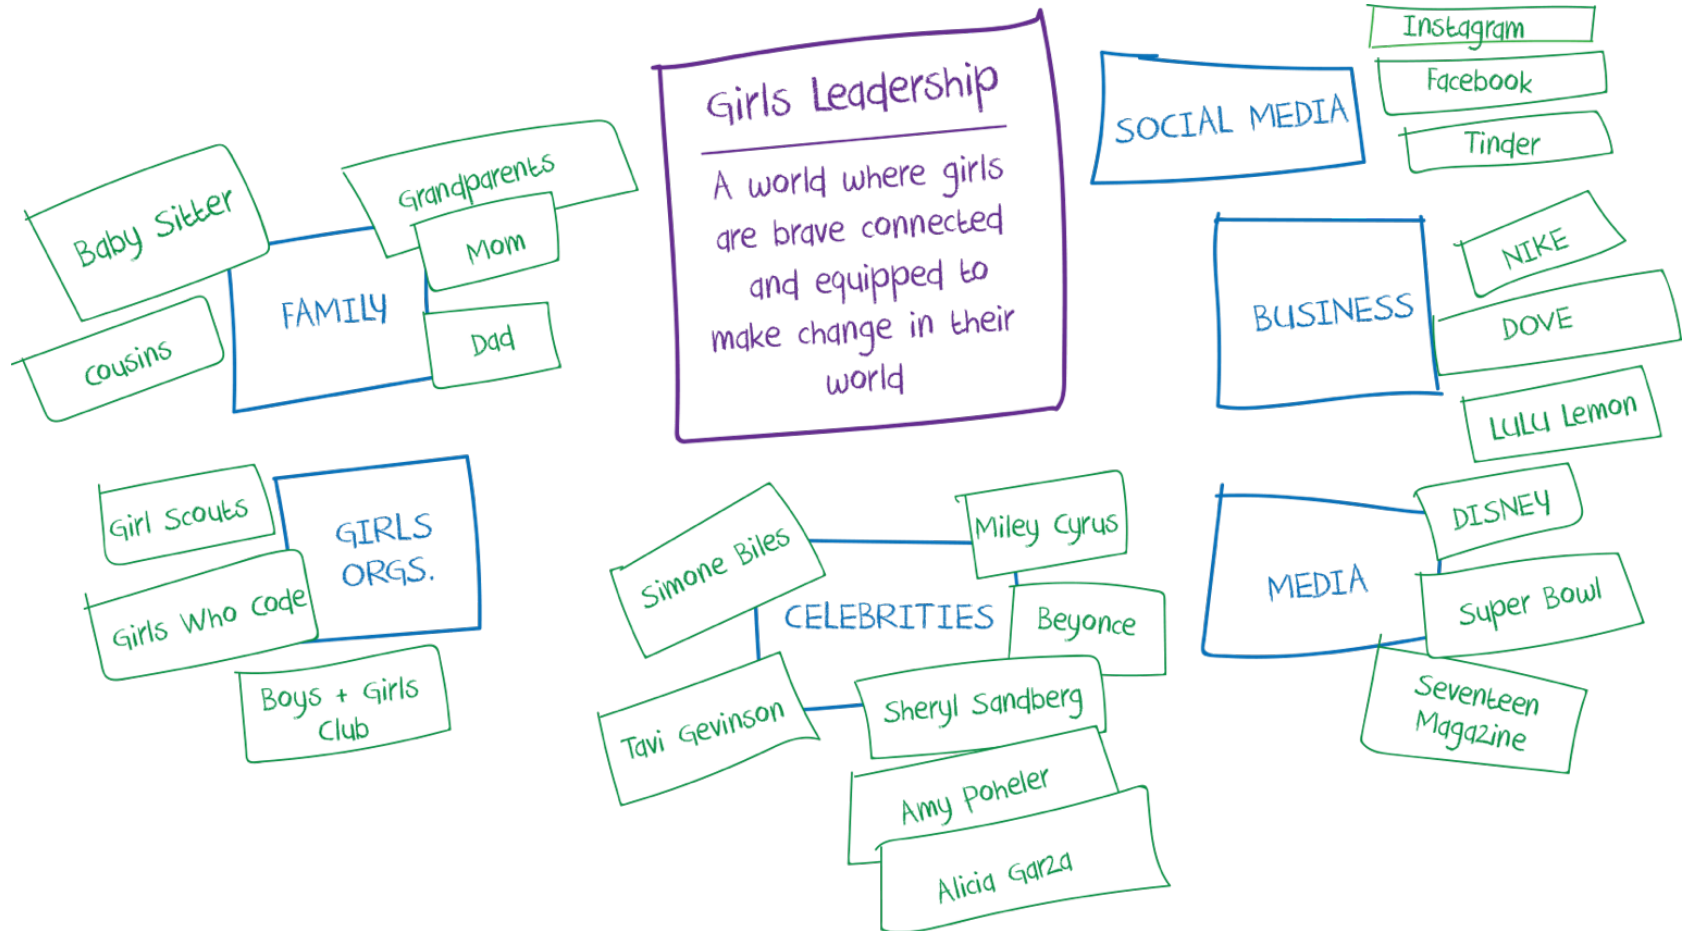 Girls Leadership
A world where girls
are brave connected
and equipped to
make change in their
world
SOCIAL MEDIA
Instagram
Facebook
Tinder
Baby Sitter
Grandparents
Mom
FAMILY
Dad
cousins
BUSINESS
NIKE
DOVE
LULU Lemon
GIRLS
ORGS.
Girl Scouts
Girls Who Code
Boys + Girls
Club
CELEBRITIES
Simone Biles
Miley Cyrus
Beyonce
Tavi Gevinson
Sheryl Sandberg
Amy Poheler
Alicia Garza
MEDIA
DISNEY
Super Bowl
Seventeen
Magazine